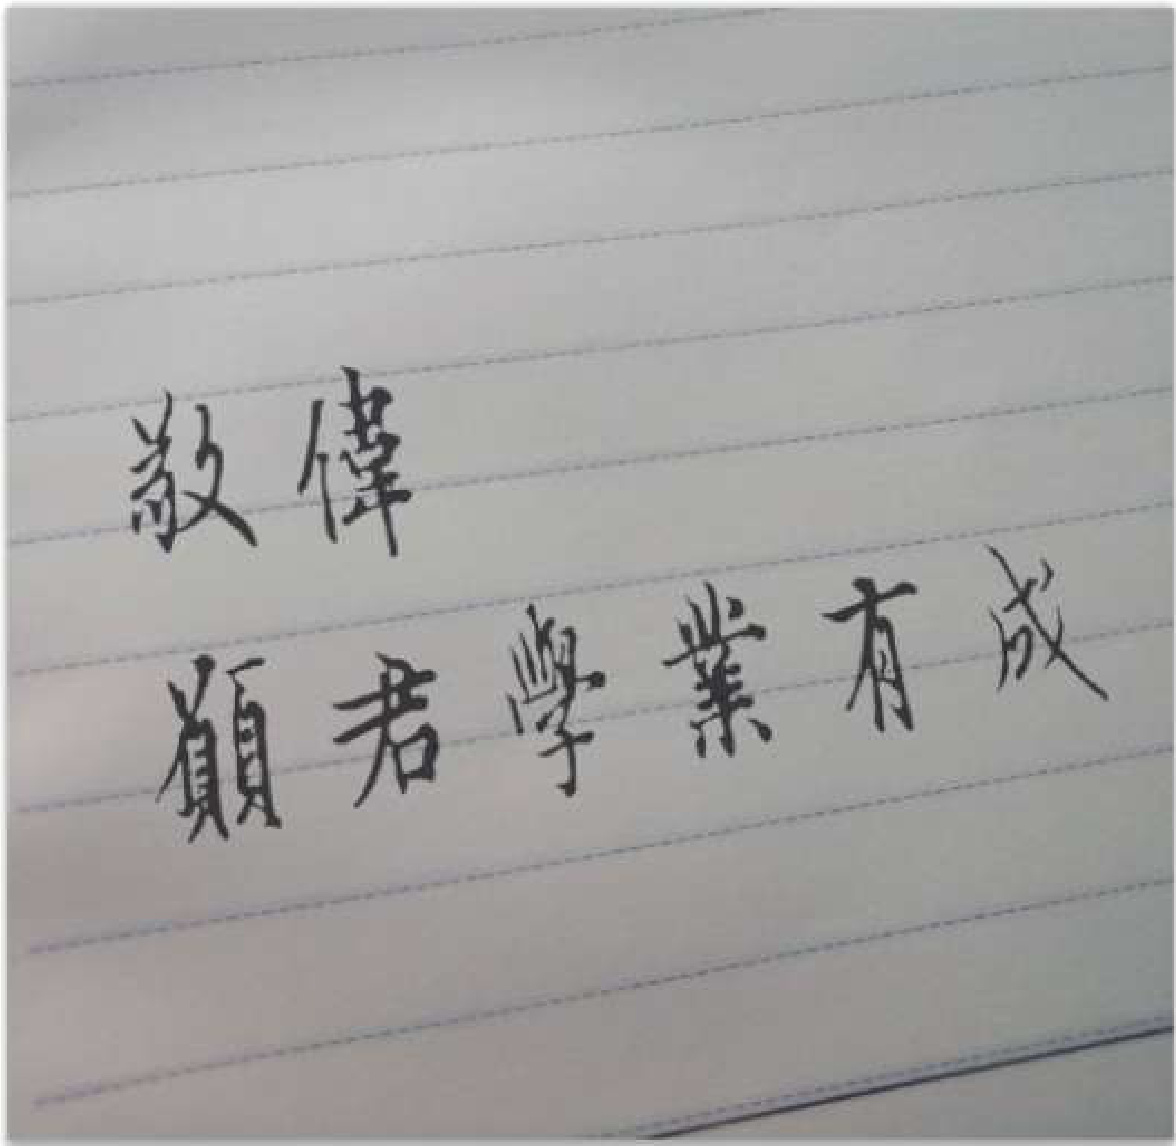 敬偉
願君學業有成